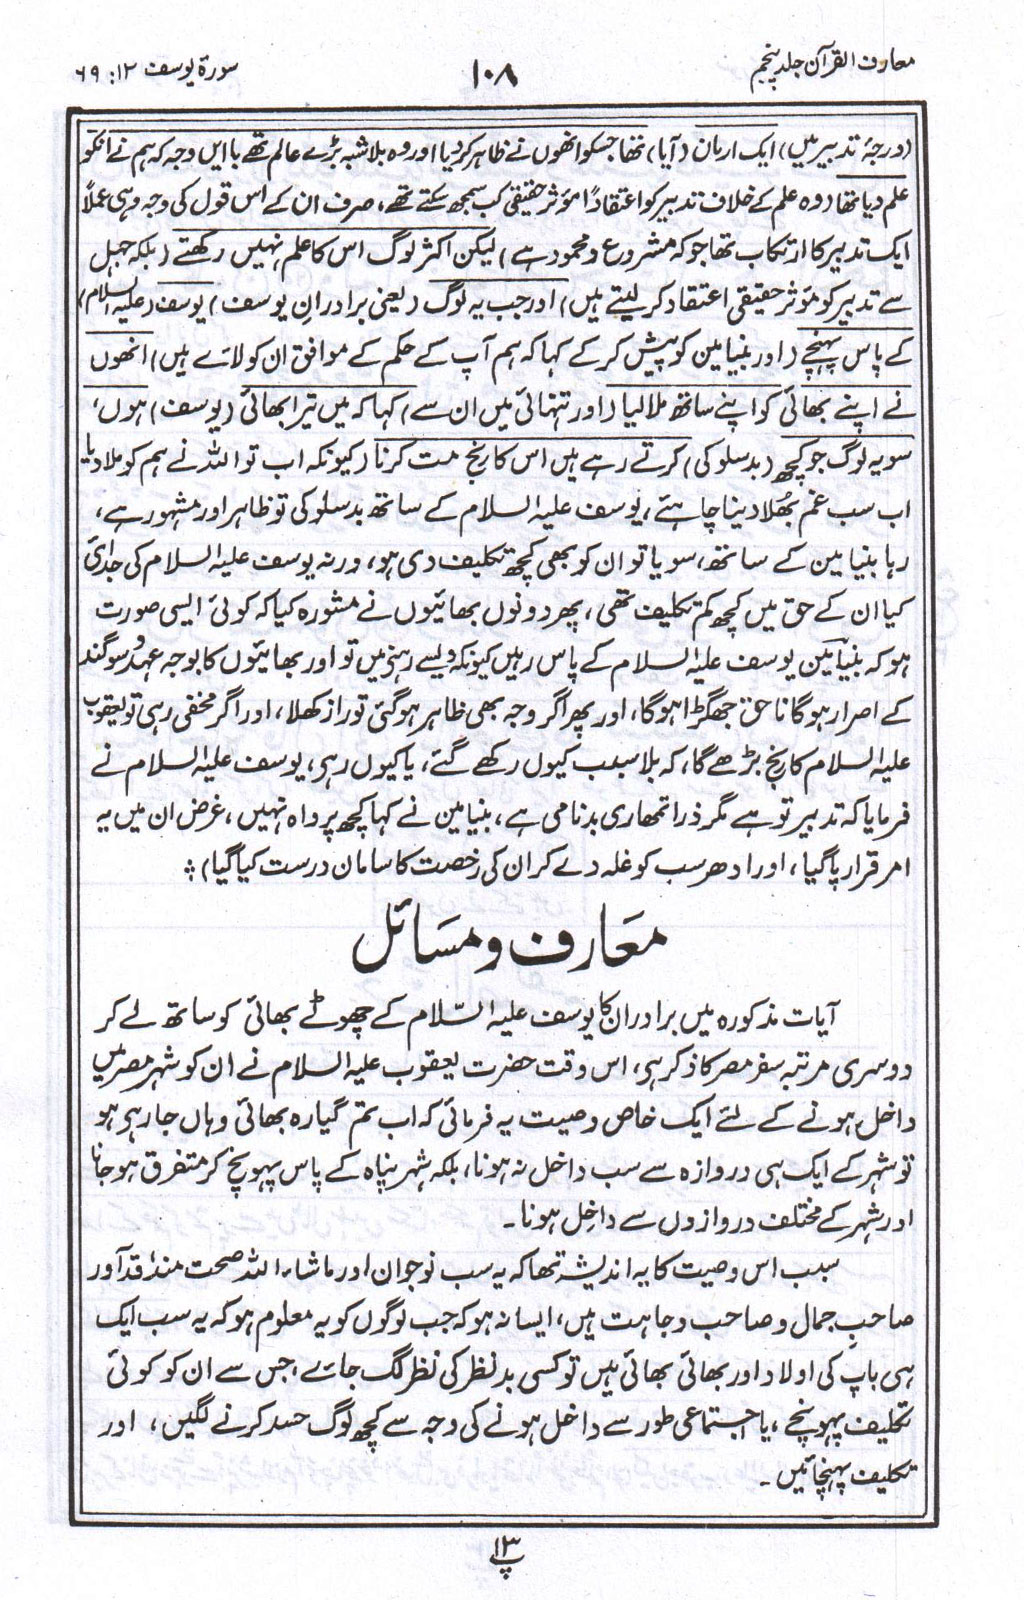 معارف القرآن جلد پنجم
۱۰۸
سورۃ یوسف ۱۲: ۶۹
(درجۂ تدبیر میں) ایک ارمان (آیا) تھا جسکو انھوں نے ظاہر کر دیا اور وہ بلاشبہ بڑے عالم تھے بایں وجہ کہ ہم نے انکو
علم دیا تھا (وہ علم کے خلاف تدبیر کو اعتقاداً مؤثر حقیقی کب سمجھ سکتے تھے، صرف ان کے اس قول کی وجہ وہی عملاً
ایک تدبیر کا ارتکاب تھا جو کہ مشروع و محمود ہے) لیکن اکثر لوگ اس کا علم نہیں رکھتے (بلکہ جہل
سے تدبیر کو مؤثر حقیقی اعتقاد کر لیتے ہیں) اور جب یہ لوگ (یعنی برادرانِ یوسف) یوسف (علیہ السلام)
کے پاس پہنچے (اور بنیامین کو پیش کر کے کہا کہ ہم آپ کے حکم کے موافق ان کو لائے ہیں) انھوں
نے اپنے بھائی کو اپنے ساتھ ملا لیا (اور تنہائی میں ان سے) کہا کہ میں تیرا بھائی (یوسف) ہوں،
سو یہ لوگ جو کچھ (بدسلوکی) کرتے رہے ہیں اس کا رنج مت کرنا (کیونکہ اب تو اللہ نے ہم کو ملا دیا
اب سب غم بھُلا دینا چاہئے، یوسف علیہ السلام کے ساتھ بدسلوکی تو ظاہر اور مشہور ہے،
رہا بنیامین کے ساتھ، سو یا تو ان کو بھی کچھ تکلیف دی ہو، ورنہ یوسف علیہ السلام کی جدائی
کیا ان کے حق میں کچھ کم تکلیف تھی، پھر دونوں بھائیوں نے مشورہ کیا کہ کوئی ایسی صورت
ہو کہ بنیامین یوسف علیہ السلام کے پاس رہیں کیونکہ ویسے رہنے میں تو اور بھائیوں کا بوجہ عہد و سوگند
کے اصرار ہوگا ناحق جھگڑا ہوگا، اور پھر اگر وجہ بھی ظاہر ہو گئی تو راز کھلا، اور اگر مخفی رہی تو یعقوب
علیہ السلام کا رنج بڑھے گا، کہ بلا سبب کیوں رکھے گئے، یا کیوں رہے، یوسف علیہ السلام نے
فرمایا کہ تدبیر تو ہے مگر ذرا تمھاری بدنامی ہے، بنیامین نے کہا کچھ پرواہ نہیں، غرض ان میں یہ
امر قرار پا گیا، اور ادھر سب کو غلہ دے کر ان کی رخصت کا سامان درست کیا گیا)
مَعَارف و مسَائل
آیات مذکورہ میں برادران کا یوسف علیہ السّلام کے چھوٹے بھائی کو ساتھ لے کر
دوسری مرتبہ سفر مصر کا ذکر ہے، اس وقت حضرت یعقوب علیہ السلام نے ان کو شہر مصر میں
داخل ہونے کے لئے ایک خاص وصیت یہ فرمائی کہ اب تم گیارہ بھائی وہاں جا رہے ہو
تو شہر کے ایک ہی دروازہ سے سب داخل نہ ہونا، بلکہ شہر پناہ کے پاس پہونچ کر متفرق ہوجانا
اور شہر کے مختلف دروازوں سے داخل ہونا۔
سبب اس وصیت کا یہ اندیشہ تھا کہ یہ سب نوجوان اور ماشاء اللہ صحت مند قد آور
صاحبِ جمال و صاحب وجاہت ہیں، ایسا نہ ہو کہ جب لوگوں کو یہ معلوم ہو کہ یہ سب ایک
ہی باپ کی اولاد اور بھائی بھائی ہیں تو کسی بدنظر کی نظر لگ جائے، جس سے ان کو کوئی
تکلیف پہونچے، یا اجتماعی طور سے داخل ہونے کی وجہ سے کچھ لوگ حسد کرنے لگیں، اور
تکلیف پہنچائیں۔
پ۱۳